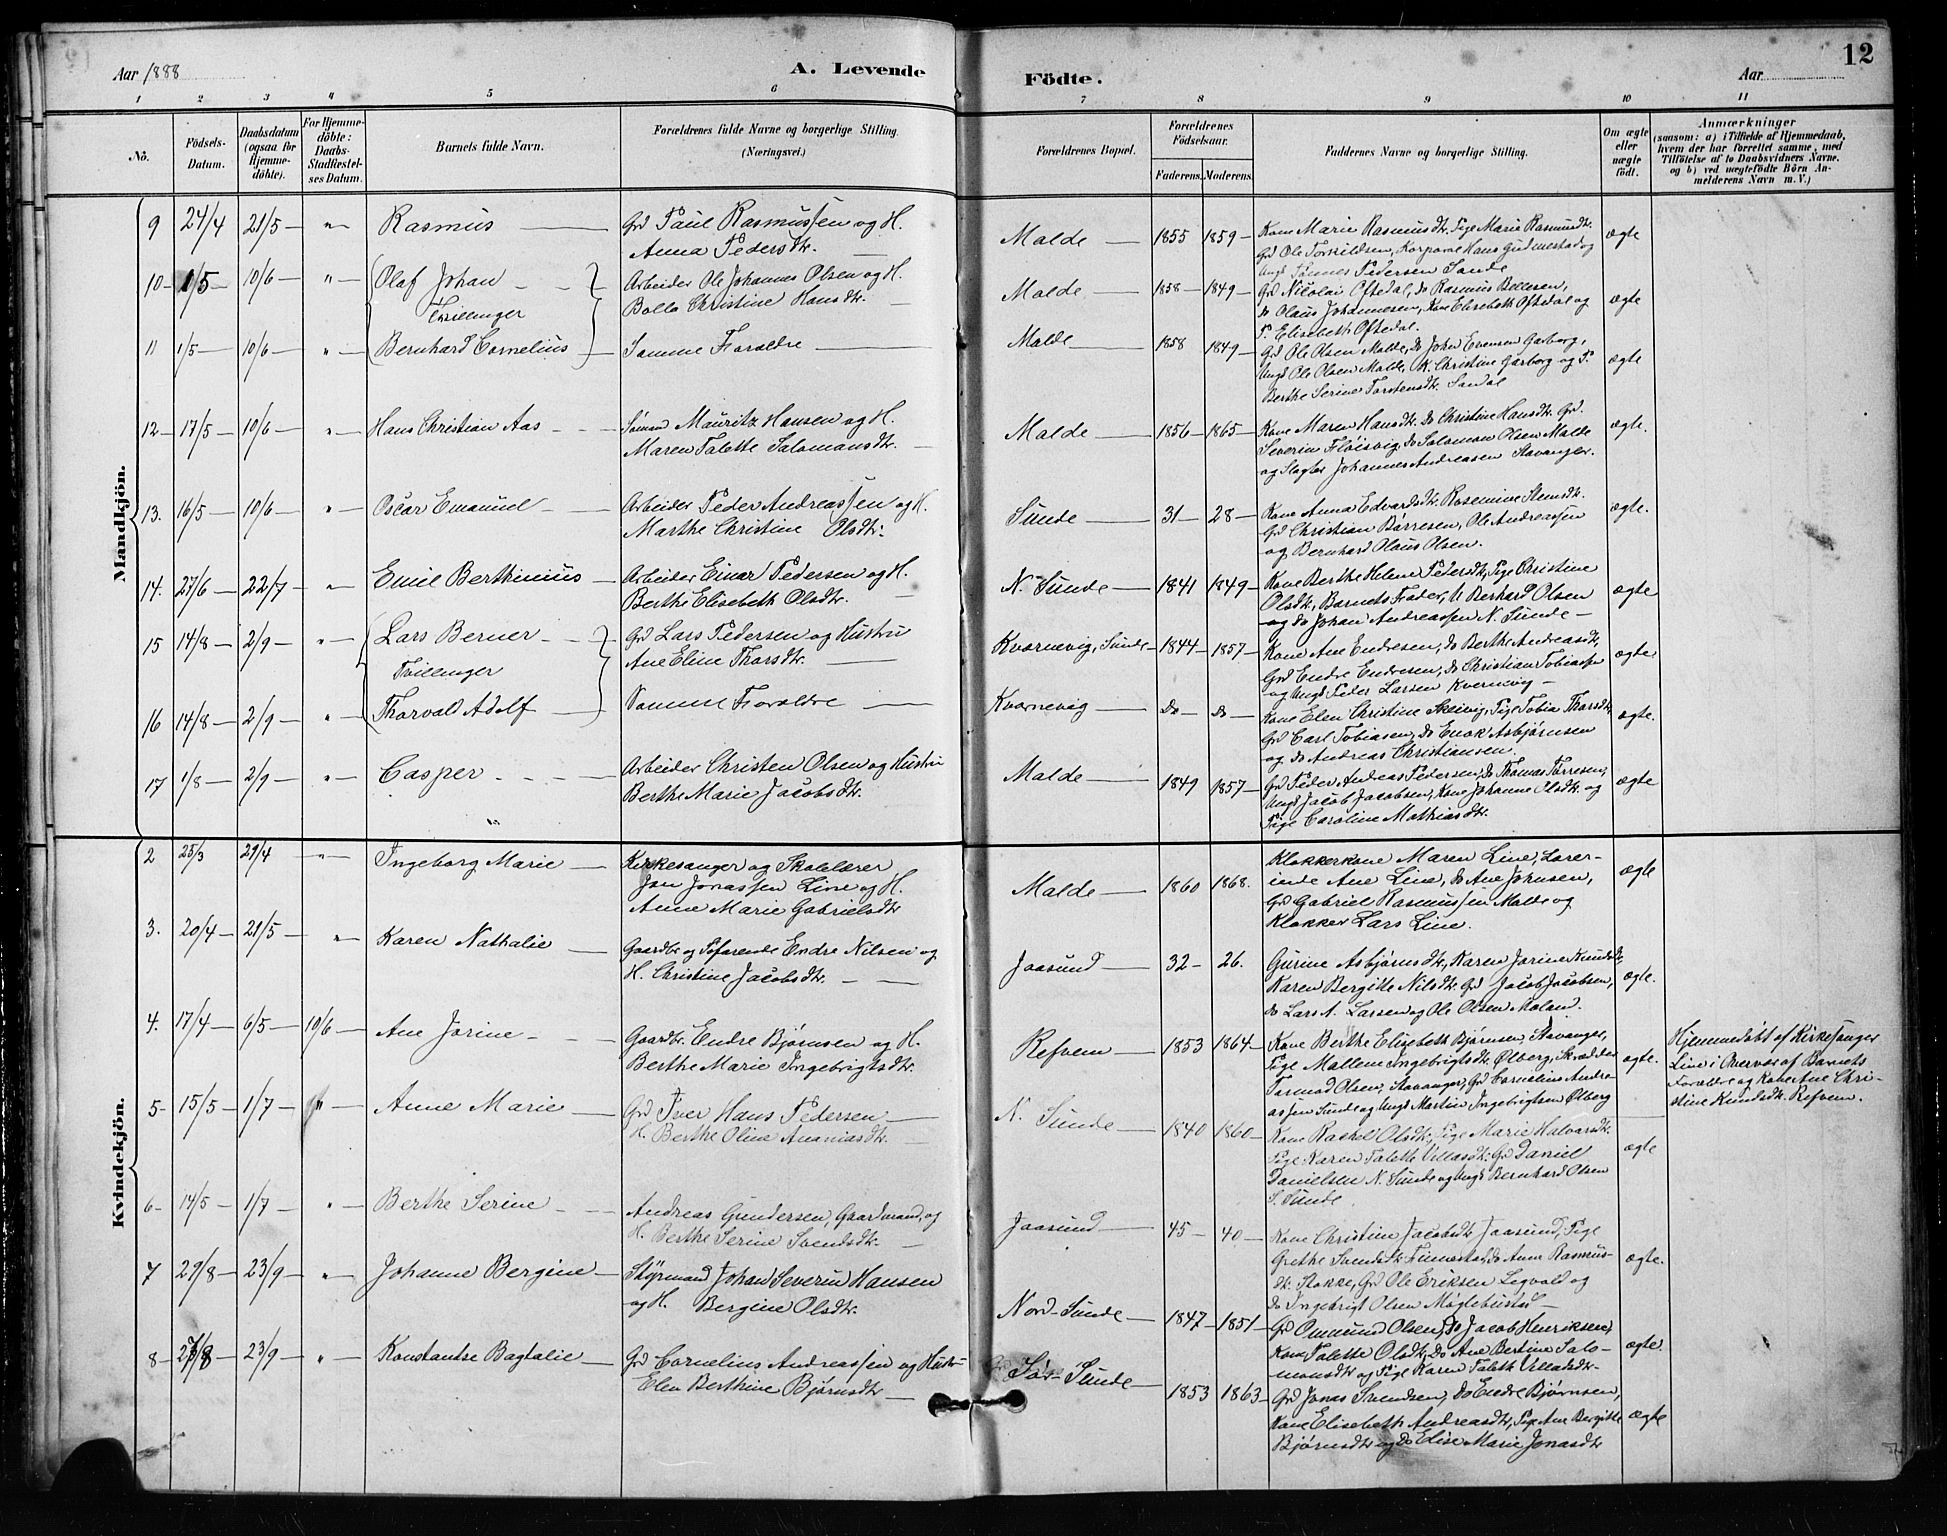 12
Aar 1888
A. Levende
Födte.
Aar
1 2 3 4 5 6 7 8 9 10 11
No.
Födsels-Datum.
Daabsdatum (ogsaa for Hjemme-döbte).
For Hjemme-döbte: Daabs-Stadfæstel-ses Datum.
Barnets fulde Navn.
Forældrenes fulde Navne og borgerlige Stilling. (Næringsvei.)
Forældrenes Bopæl.
Forældrenes Födselsaar.
Faderens. Moderens.
Faddernes Navne og borgerlige Stilling.
Om ægte eller uægte födt.
Anmærkninger
(saasom: a) i Tilfælde af Hjemmedaab, hvem der har forrettet samme, med Tilföielse af to Daabsvidners Navne. og b) ved uægtefödte Börn An-melderens Navn m. V.)
Mandkjön.
9 24/4 21/5 — " — Rasmus — Grd Paul Rasmussen og H.
Anna Pedersdtr.
Malde — 1855 1859 — Kone Marie Rasmusdtr. Pige Marie Rasmusdtr.
Grd Ole Torkildsen, Korporal Hans Gudmestad og
Ungk Tønnes Pedersen Sande
ægte
10 — 1/5 10/6 " — Olaf Johan — Arbeider Ole Johannes Olsen og H.
Tvillinger
Bolla Christine Hansdtr. —
Malde — 1858 — 1849 — Grd Nicolai Oftedal, do Rasmus Bellesen,
do Olaus Johannesen, Kone Elisebeth Oftedal og
P. Elisebeth Oftedal.
ægte
11 1/5 — 10/6 — " — Bernhard Cornelius — Samme Forældre —
Malde — 1858 1849 — Grd Ole Olsen Malde, do John Evensen Garborg,
Ungk Ole Olsen Malde, K. Christine Garborg og P.
Berthe Serine Torstensdtr. Sandal
ægte
12 — 17/5 — 10/6 — " — Hans Christian Aas — Sømand Mauritz Hansen og H.
Maren Talette Salomonsdtr. —
Malde — 1856 — 1865 — Kone Maren Hansdtr. do Christine Hansdtr. Grd.
Severin Fløisvig, do Salomon Olsen Malde
og Slagter Johannes Andreasen Stavanger.
ægte.
13. 16/5 — 10/6 — " — Oscar Emanuel — Arbeider Peder Andreassen og H.
Marthe Christine Olsdtr.
Sunde — 31 — 28 — Kone Anna Edvardsdtr. Rosemine Stensdtr.
Grd Christian Børresen, Ole Andreassen
og Bernhard Olaus Olsen.
ægte.
14. 27/6 — 22/7 " — Emil Berthinius — Arbeider Einar Pedersen og H.
Berthe Elisebeth Olsdtr. —
N. Sunde — 1841 1849 — Kone Berthe Helene Pedersdtr, Pige Christine
Olsdtr, Barnets Fader, U. Berhard Olsen
og do Johan Andreassen N. Sunde —
ægte
15 14/8 — 2/9 — " — Lars Berner — Grd Lars Pedersen og Hustru
Tvillinger
Ane Eline Thorsdtr. —
Kværnevig, Sunde — 1844 — 1857 — Kone Ane Endresen, do Berthe Andreasdtr,
Grd Endre Endresen, do Christian Tobiassen
og Ungk Peder Larsen Kvernvig —
ægte
16 14/8 — 2/9 — " — Thorvald Adolf — Samme Forældre —
Kvernevig — do — do — Kone Elen Christine Skeivig, Pige Tobia Thorsdtr.
Grd Carl Tobiasen, do Enok Asbjørnsen
og do Andreas Christiansen.
ægte.
17 1/8 — 2/9 — " — Casper — Arbeider Christen Olsen og Hustru
Berthe Marie Jacobsdtr.
Malde — 1849 1857 — Grd Peder Andreas Pedersen, do Thomas Tørresen,
Ungk Jacob Jacobsen, Kone Johanne Olsdtr. og
Pige Caroline Mathiasdtr.
ægte
Kvindekjön.
2 25/3 29/4 — " — Ingeborg Marie — Kirkesanger og Skolelærer
Jon Jonassen Line og H.
Anne Marie Gabrielsdtr
Malde — 1860 1868. Klokkerkone Maren Line, Lærer-
inde Ane Line, do Ane Johnsen,
Grd Gabriel Rasmussen Malde og
Klokker Lars Line.
ægte
3. 20/4 — 21/5 " — Karen Nathalie — Gaardbr og Søfarende Endre Nilsen og
H. Christine Jacobsdtr. —
Jaasund — 32 — 26. Gurine Asbjørnsdtr, Karen Jorine Knudsdtr,
Karen Bergitte Nilsdtr. Grd Jacob Jacobsen,
do Lars N. Larsen og Ole Olsen Meland.
ægte.
4. 17/4 — 6/5 — 10/6 — Ane Jorine — Gaardbr. Endre Bjørnsen og H.
Berthe Marie Ingebrigtsdtr.
Refvem — 1853 1864 — Kone Berthe Elisebeth Bjørnsen, Stavanger,
Pige Mallene Ingebrigtsdtr. Ølberg, Skrædder
Tormod Olsen, Stavanger, Grd Cornelius Andre-
assen Sunde og Ungk Martin Ingebrigtsen Ølberg
ægte. Hjemmedøbt af Kirkesanger
Line i Overvær af Barnets
Forældre og Kone Ane Chri-
stine Knudsdtr. Refvem.
5 — 15/5 — 1/7 " — Anne Marie — Grd Iver Hans Pedersen —
H. Berthe Oline Ananiasdtr. —
N. Sunde — 1840 1860 — Kone Rachel Olsdtr. Pige Marie Halvorsdtr.
Pige Karen Talette Villasdtr. Grd Daniel
Danielsen N. Sunde og Ungk Bernhard Olsen
S. Sunde
ægte
6 — 14/5 — 1/7 — " — Berthe Serine — Andreas Gundersen, Gaardmand, og
H. Berthe Serine Svendsdtr. —
Jaasund — 45 — 40 — Kone Christine Jacobsdtr Jaasund, Pige
Grethe Svendsdtr. Finnestad, do Anne Rasmus-
dtr. Stokke, Grd Ole Eriksen Legvold og
do Ingebrigt Olsen Møglebustad —
ægte.
7 29/8 — 23/9 — " — Johanne Bergine — Styrmand Johan Severin Hansen
og H. Bergine Olsdtr.
Nord-Sunde — 1847 — 1851 — Grd Ommund Olsen, do Jacob Henriksen,
Kone Talette Olsdtr, do Ane Bertine Salo-
monsdtr og Pige Karen Taleth Villadsdtr.
ægte.
8 — 27/8 23/9 — " — Konstantse Bagtalie — Grd Cornelius Andreassen og Hustru
Elen Berthine Bjørnsdtr —
Sør-Sunde — 1853 1863 — Grd Jonas Svendsen, do Endre Bjørnsen,
Kone Elisebeth Andreasdtr, Pige Ane Bergitte
Bjørnsdtr og do Elise Marie Jonasdtr
ægte